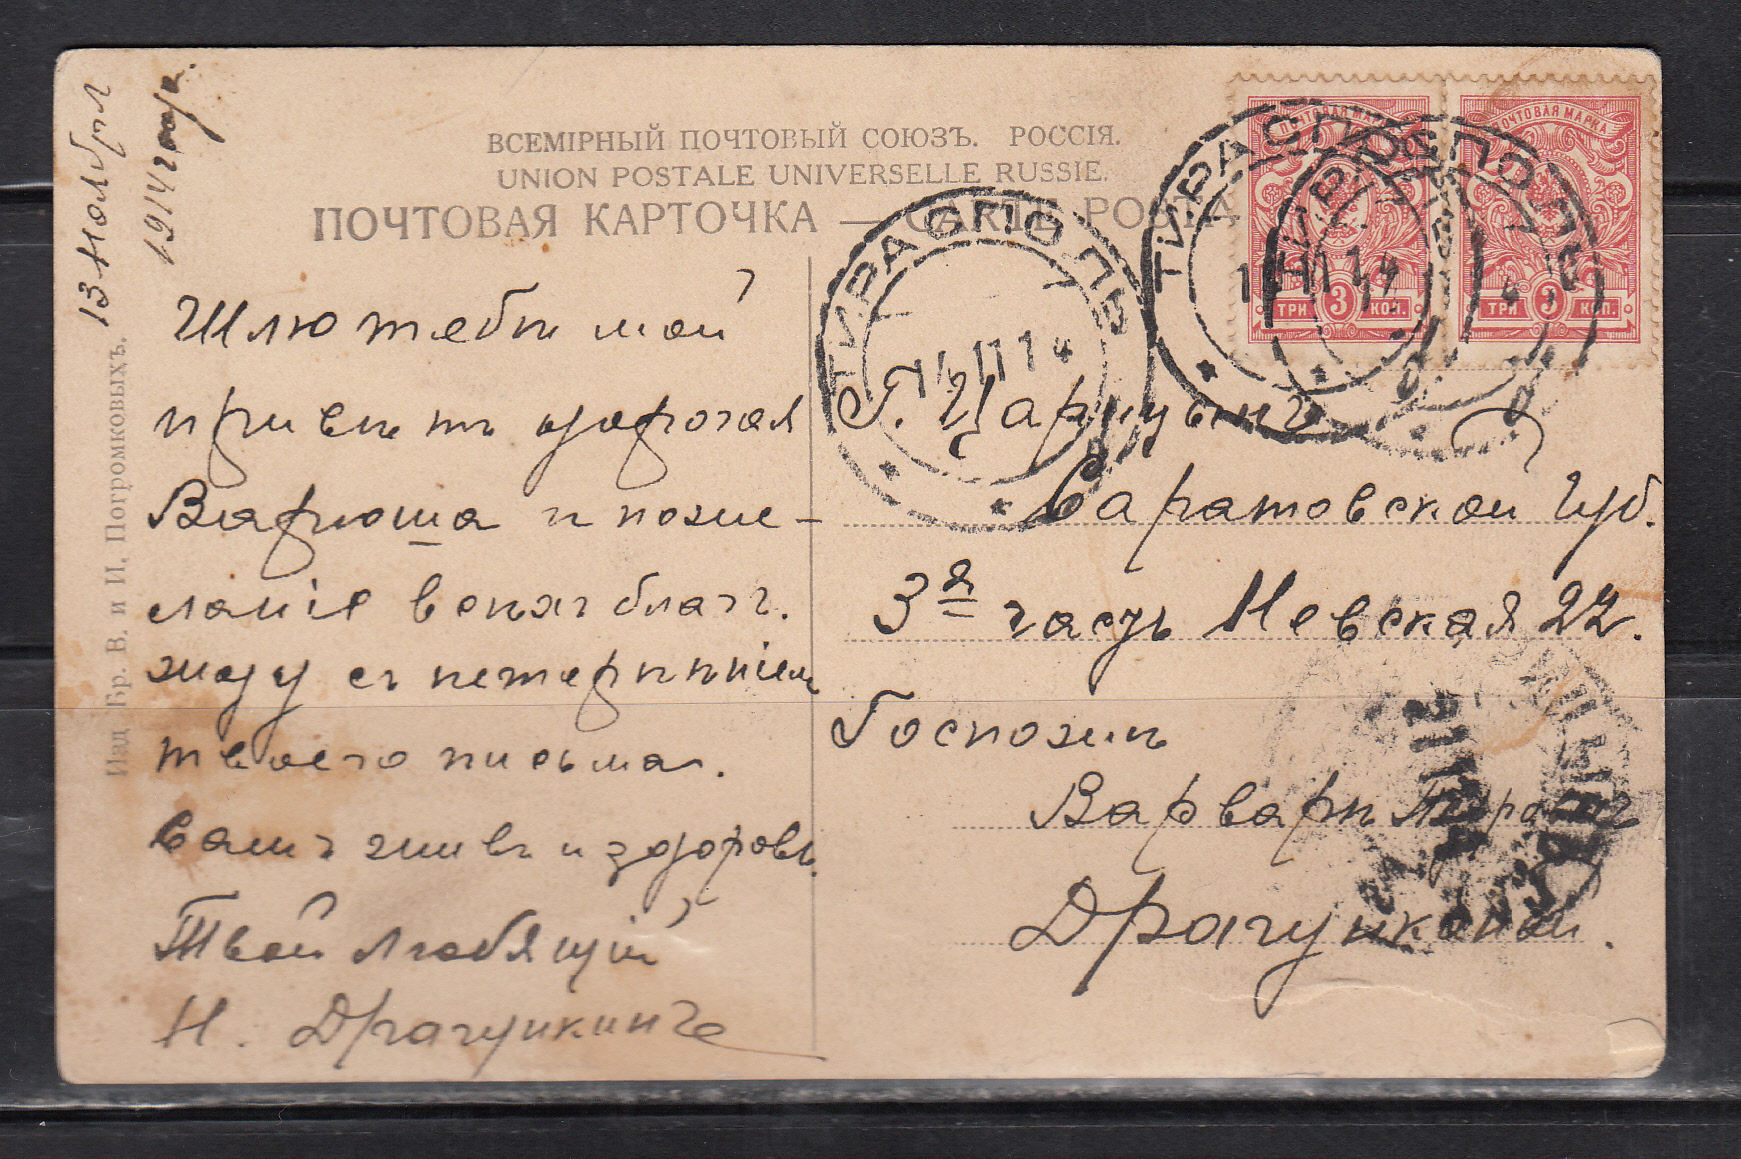 13 Ноября
1914 года.
ВСЕМІРНЫЙ ПОЧТОВЫЙ СОЮЗЪ. РОССІЯ.
UNION POSTALE UNIVERSELLE RUSSIE.
ПОЧТОВАЯ КАРТОЧКА — CARTE POSTA
ПОЧТОВАЯ МАРКА
ТРИ 3 КОП.
ПОЧТОВАЯ МАРКА
ТРИ 3 КОП.
ТИРАСПОЛЬ
ТИРАСПОЛЬ
14 11 14
ТИРАСПОЛЬ
Шлю тебѣ мой
привѣтъ дорогая
Варюша и поже-
ланіе всѣхъ благъ.
жду съ нетерпѣніем
твоего письма.
Вашъ живъ и здоровъ.
Твой Любящій
Н. Драгункинъ
Г. Царицынъ
Саратовской Губ.
3я часть Невская 22.
Госпожѣ
Варварѣ
Драгункиной.
Изд. Бр. В. и И. Погромковыхъ.